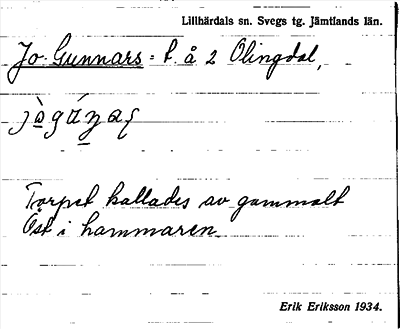 Lillhärdals sn. Svegs tg. Jämtlands län.
Jo-Gunnars: å 2 Olingdal,
Torpet kallades av gammalt
Öst i hammaren
Erik Eriksson 1934.